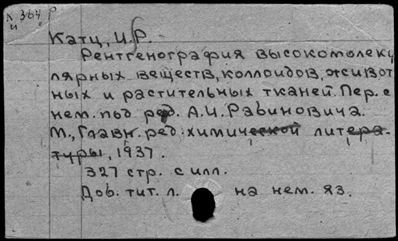 К 364 р
и
Катц, И.Р.
Рентгенография высокомолеку
лярных веществ, коллоидов, живот
ных и растительных тканей. Пер. с
нем. под ред. А.И. Рабиновича.
М, Главн. ред. химической литера-
туры, 1937.
327 стр. с илл.
Доб. тит. л. на нем. яз.